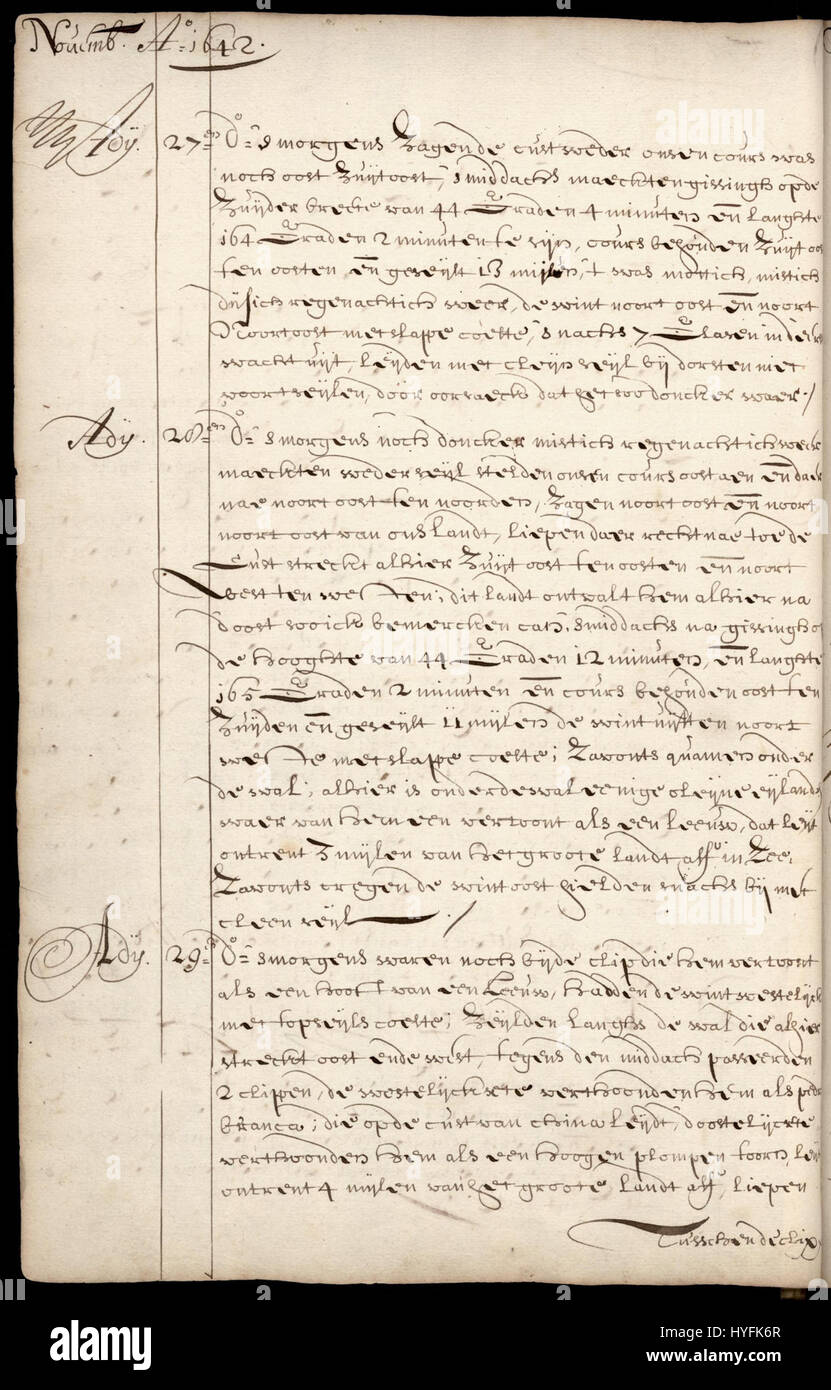 Novemb. Aº 1642.
Ady. 27en Dº smorgens Zagen de cust weder onsen cours was
noch oost Zuijt oost, smiddachs maeckten gissingh op de
Zuijder breete van 44 Graden 4 minuten en langhte
164 Graden 2 minuten te zijn, cours behouden Zuijt oo
ten oosten en geseylt 13 mijlen, t was mottich, mistich
dijsich regenachtich weer, de wint noort oost en noort
Noortoost met slape coelte, snachs 7 Glasen in de
wacht uijt, leijden met cleijn seyl bij dorsten niet
voort seijlen, door oorsaeck dat het soo doncker waer /
Ady. 28en Dº smorgens noch doncker mistich regenachtich weer
maeckten weder seyl stelden onsen cours oost aen en daer
nae noort oost ten noorden, Zagen noort oost en noort
noort oost van ons landt, liepen daer recht nae toe de
Cust streckt alhier Zuijt oost ten oosten en noort
west ten westen, dit landt ontvalt hem alhier na
doost soo ick bemercken can, smiddachs na gissingh o
de hooghte van 44 Graden 12 minuten, en langhte
165 Graden 2 minuten en cours behouden oost ten
Zuijden en geseylt 11 mijlen de wint uijtten noort
weste met slappe coelte, Tzavonts quamen onder
de wal, alhier is onder de wal eenige cleijne eijlande
waer van hem een vertoont als een leeuw, dat leijt
ontrent 3 mijlen van het groote landt aff in Zee,
Tzavonts cregen de wint oost hielden snachs bij met
cleen seyl /
Ady. 29en Dº smorgens waren noch bij de clip die hem vertoont
als een hooft van een Leeuw, hadden de wint westelijck
met topseyls coelte, Zeylden langhs de wal die alhier
streckt oost ende west, tegens den middach passeerden
2 clipen, de westelijckste verthoonden hem als pedr
branca, die op de cust van china leijdt, doostelijcxte
verthoonden hem als een hoogen plompen toorn, leij
ontrent 4 mijlen van het groote landt aff, liepen
Tusschen de clip
alamy
Image ID: HYFK6R
www.alamy.com